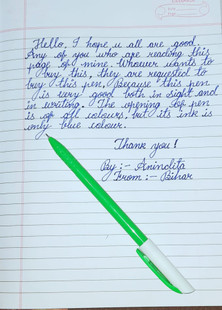 Hello, I hope u all are good.
Any of you who are reading this
page of mine. Whower wants to
buy this, they are requested to
buy this pen, Because this pen
is very good both in sight and
in writing. The opening of pen
is of all colours, but its ink is
only blue colour.
Thank you!
By :- Anindita
From :- Bihar